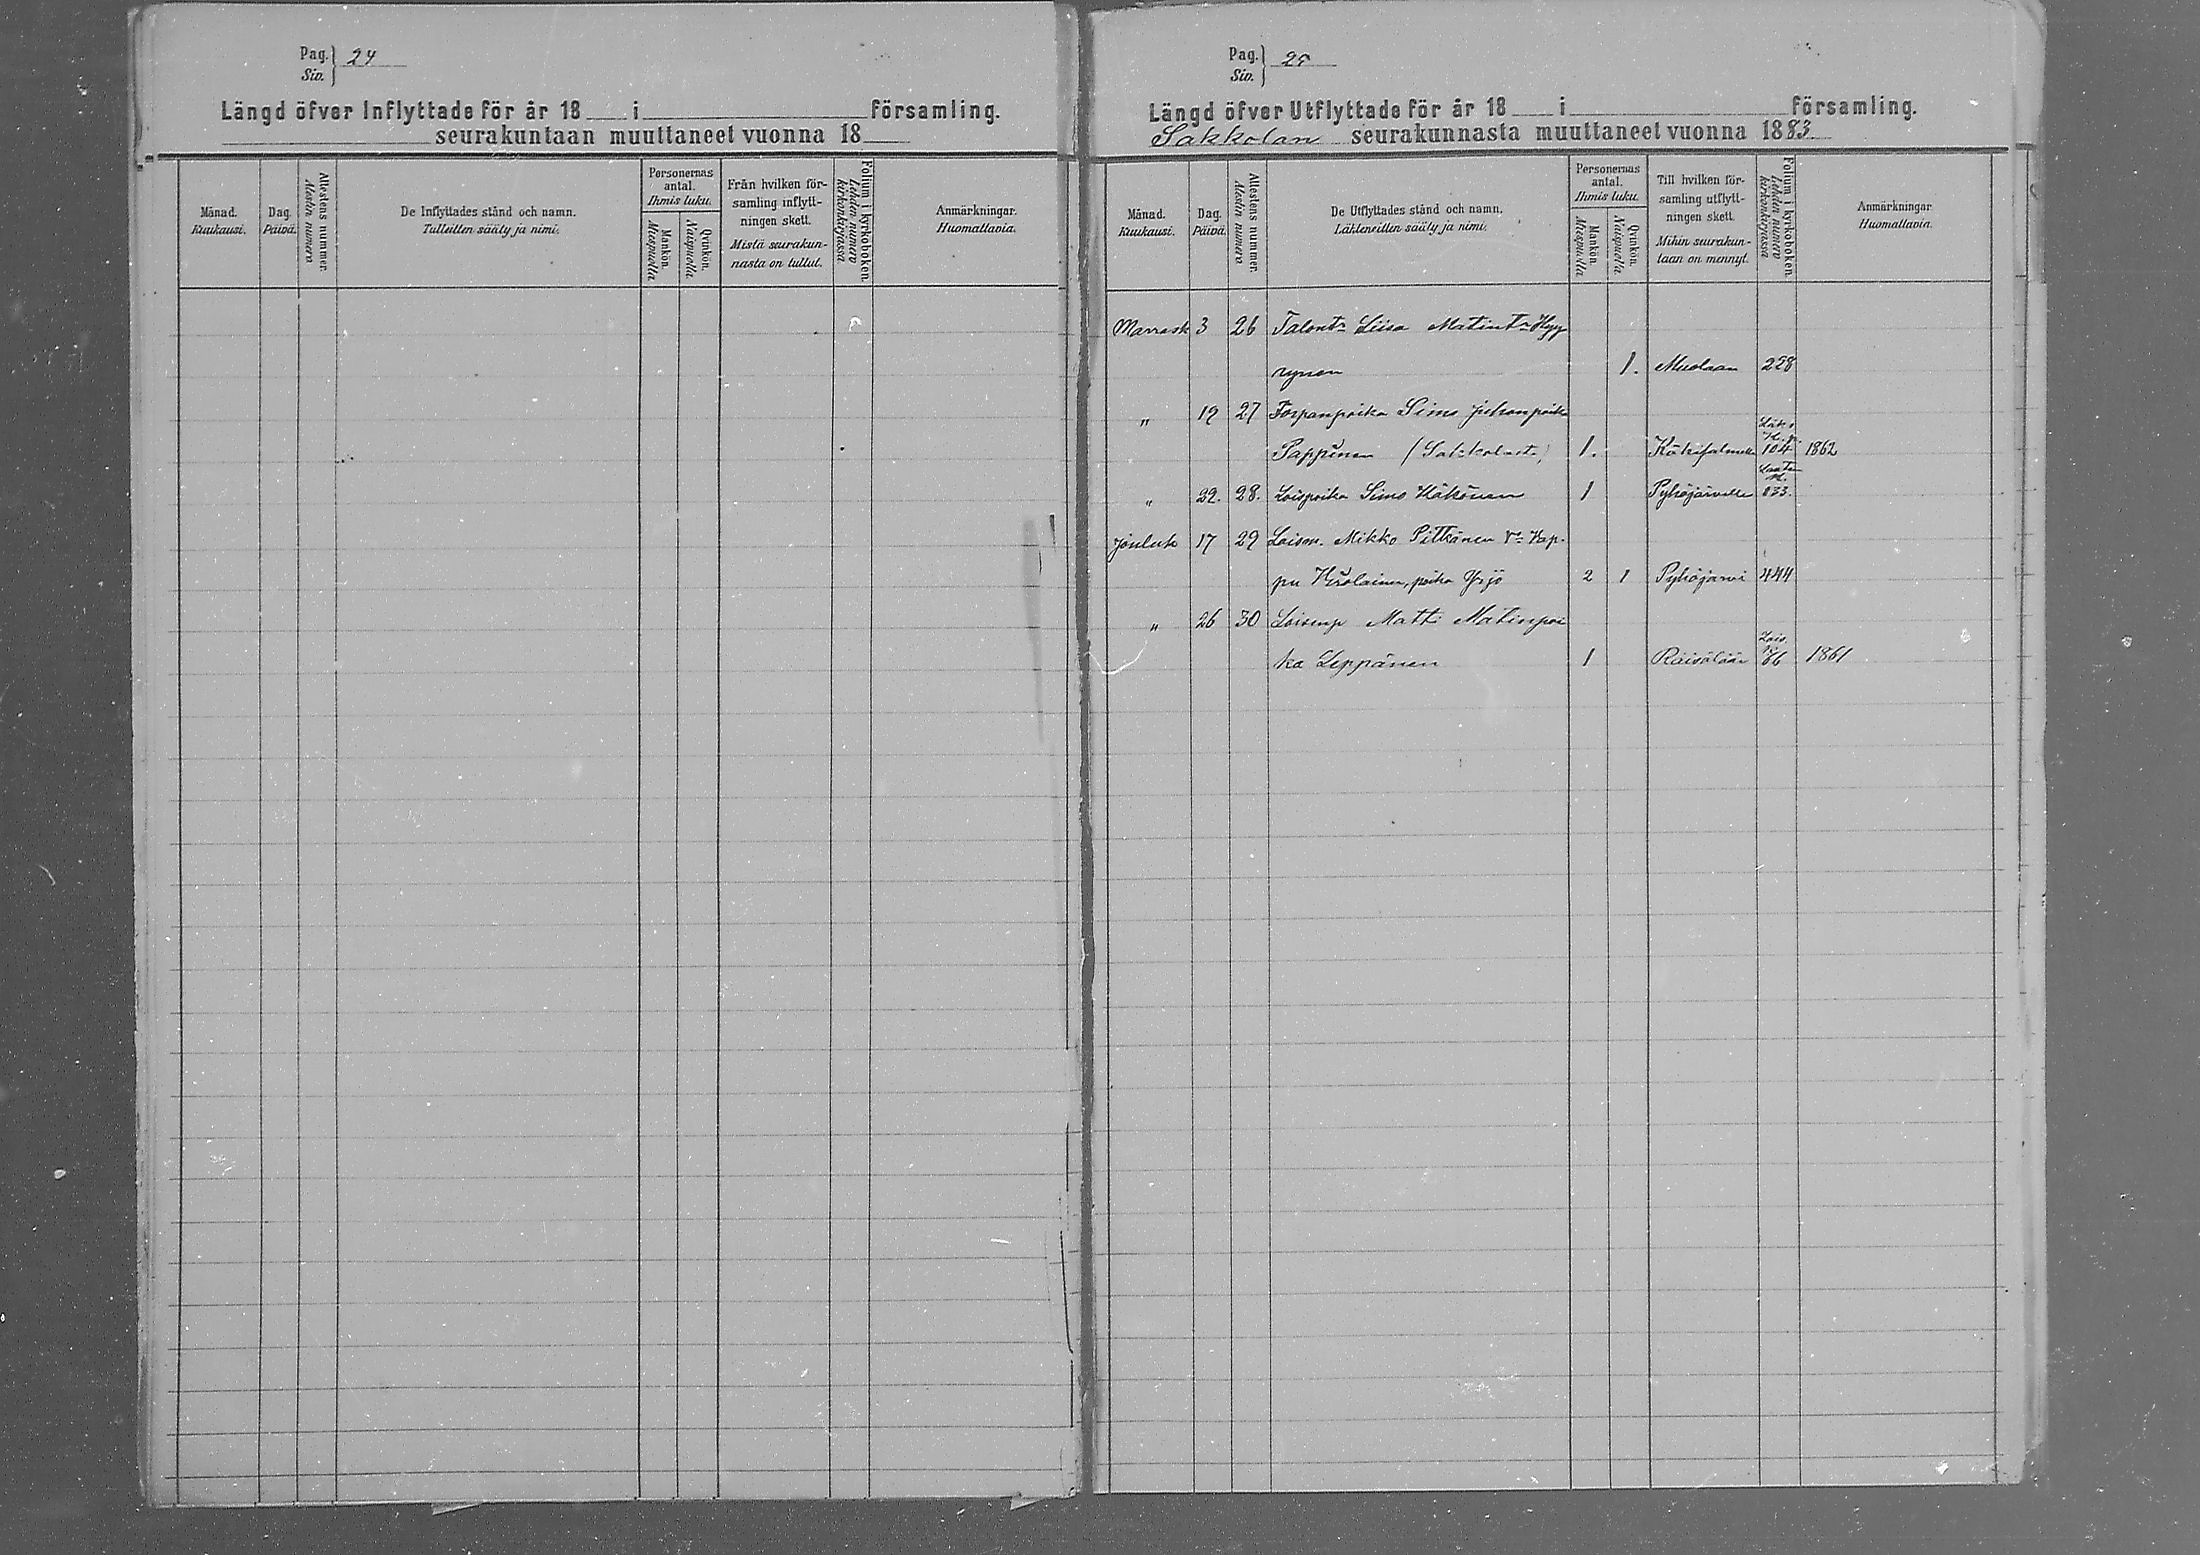 Pag. 24
Siv.
Längd öfver Inflyttade för år 18 i församling.
seurakuntaan muuttaneet vuonna 18
Månad. Kuukausi.
Dag. Päivä.
Attestens nummer. Alestin numero
De Inflyttades stånd och namn. Tulleitten sääty ja nimi.
Personernas antal. Ihmis luku.
Mankön. Miespuolia
Qvinkön. Naispuolia
Från hvilken församling inflyttningen skett. Mistä seurakunnasta on tullut.
Folium i kyrkoboken. Lehden numero kirkonkirjassa
Anmärkningar. Huomattavia.
Pag. 25
Siv.
Längd öfver Utflyttade för år 18 i församling.
Sakkolan seurakunnasta muuttaneet vuonna 1883
Månad. Kuukausi.
Dag. Päivä.
Attestens nummer. Alestin numero
De Utflyttades stånd och namn. Lähteneitten sääty ja nimi.
Personernas antal. Ihmis luku.
Mankön. Miespuolia
Qvinkön. Naispuolia
Till hvilken församling utflyttningen skett. Mihin seurakuntaan on mennyt.
Folium i kyrkoboken. Lehden numero kirkonkirjassa
Anmärkningar Huomattavia.
Marrask 3 26 Talont:r Liisa Matint:r Hyy
rynen 1. Muolaan 258
" 12 27 Torpanpoika Simo Juhonpoika
Pappinen (Sakkolast.) 1. Käkisalmelle 104 1862
" 22. 28. Loispoika Simo Käkönen 1 Pyhäjärvelle 833.
Jouluk 17 29 Loism. Mikko Pitkänen V:o Kap-
pu Kiolainen, poika Yrjö 2 1 Pyhäjärvi 444
" 26 30 Loismp Matti Matinpoi
ka Leppänen 1 Räisälään 66 1861